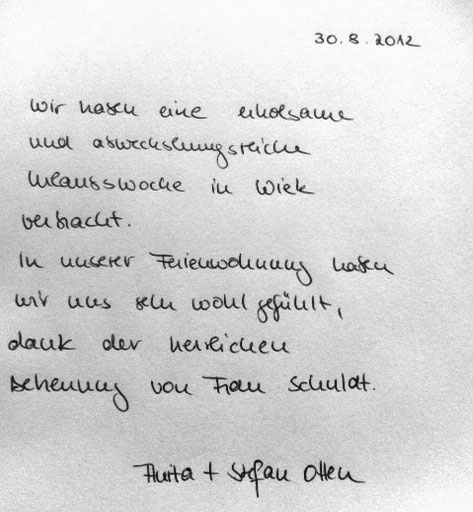 30.8.2012
Wir haben eine erholsame
und abwechslungsreiche
Urlaubswoche in Wiek
verbracht.
In unserer Ferienwohnung haben
wir uns sehr wohl gefühlt,
dank der herzlichen
Betreuung von Frau Schuldt.
Anita + Stefan Otten